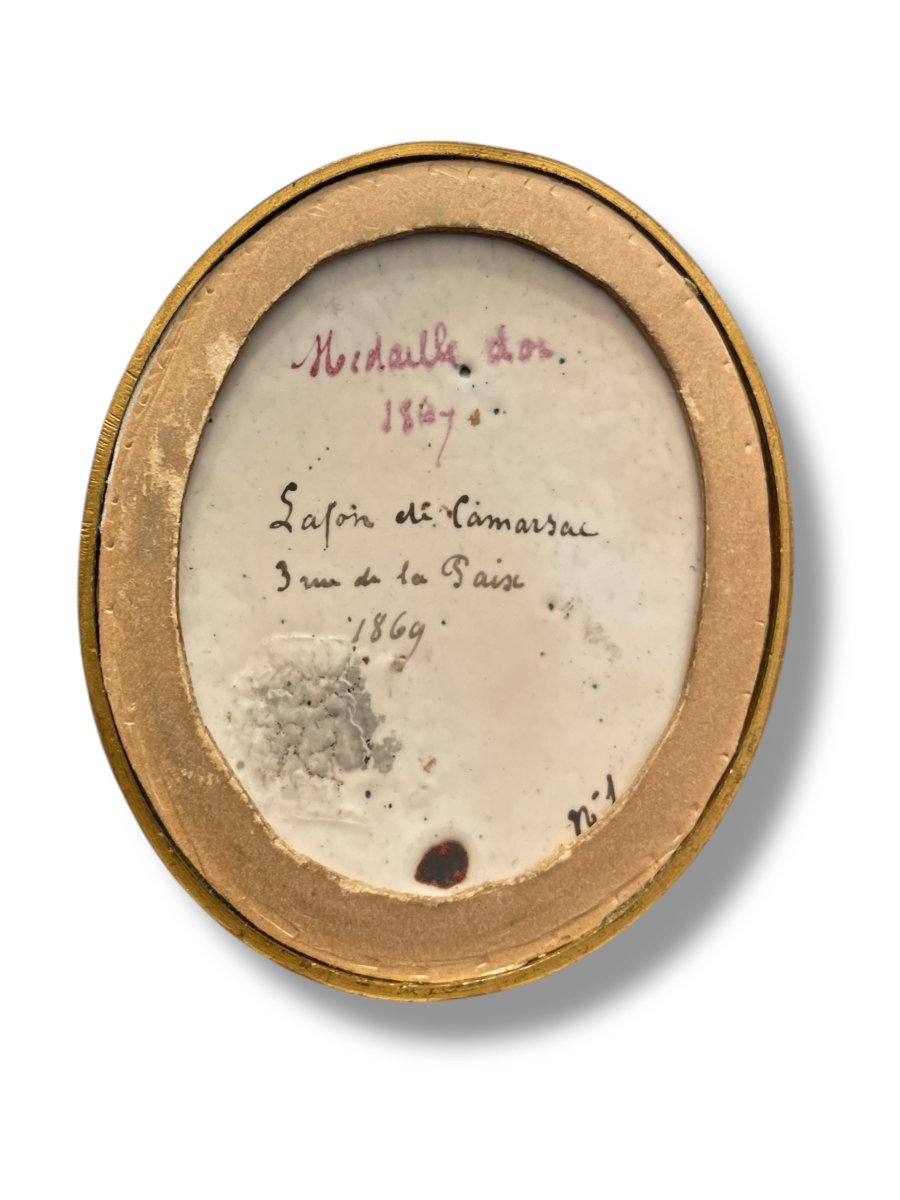 Medaille d'or
1867
Lafon de Camarsac
3 rue de la Paix
1869
N° 1